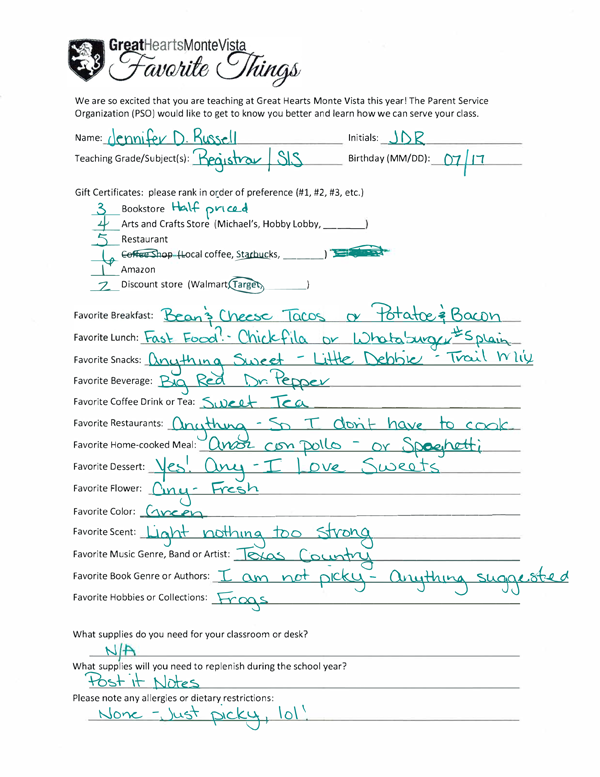 GreatHeartsMonteVista
Favorite Things
We are so excited that you are teaching at Great Hearts Monte Vista this year! The Parent Service
Organization (PSO) would like to get to know you better and learn how we can serve your class.
Name: Jennifer D. Russell Initials: JDR
Teaching Grade/Subject(s): Registrar / SIS Birthday (MM/DD): 07/17
Gift Certificates: please rank in order of preference (#1, #2, #3, etc.)
3 Bookstore Half priced
4 Arts and Crafts Store (Michael's, Hobby Lobby, ________)
5 Restaurant
6 Coffee Shop (Local coffee, Starbucks, ________)
1 Amazon
2 Discount store (Walmart, Target, ________)
Favorite Breakfast: Bean & Cheese Tacos or Potatoe & Bacon
Favorite Lunch: Fast Food? - Chickfila or Whataburger #5 plain
Favorite Snacks: Anything Sweet - Little Debbie - Trail Mix
Favorite Beverage: Big Red Dr. Pepper
Favorite Coffee Drink or Tea: Sweet Tea
Favorite Restaurants: Anything - So I don't have to cook
Favorite Home-cooked Meal: Arroz con pollo - or Spaghetti
Favorite Dessert: Yes! Any - I Love Sweets
Favorite Flower: Any - Fresh
Favorite Color: Green
Favorite Scent: Light nothing too strong
Favorite Music Genre, Band or Artist: Texas Country
Favorite Book Genre or Authors: I am not picky - Anything suggested
Favorite Hobbies or Collections: Frogs
What supplies do you need for your classroom or desk?
N/A
What supplies will you need to replenish during the school year?
Post it Notes
Please note any allergies or dietary restrictions:
None - Just picky, lol!